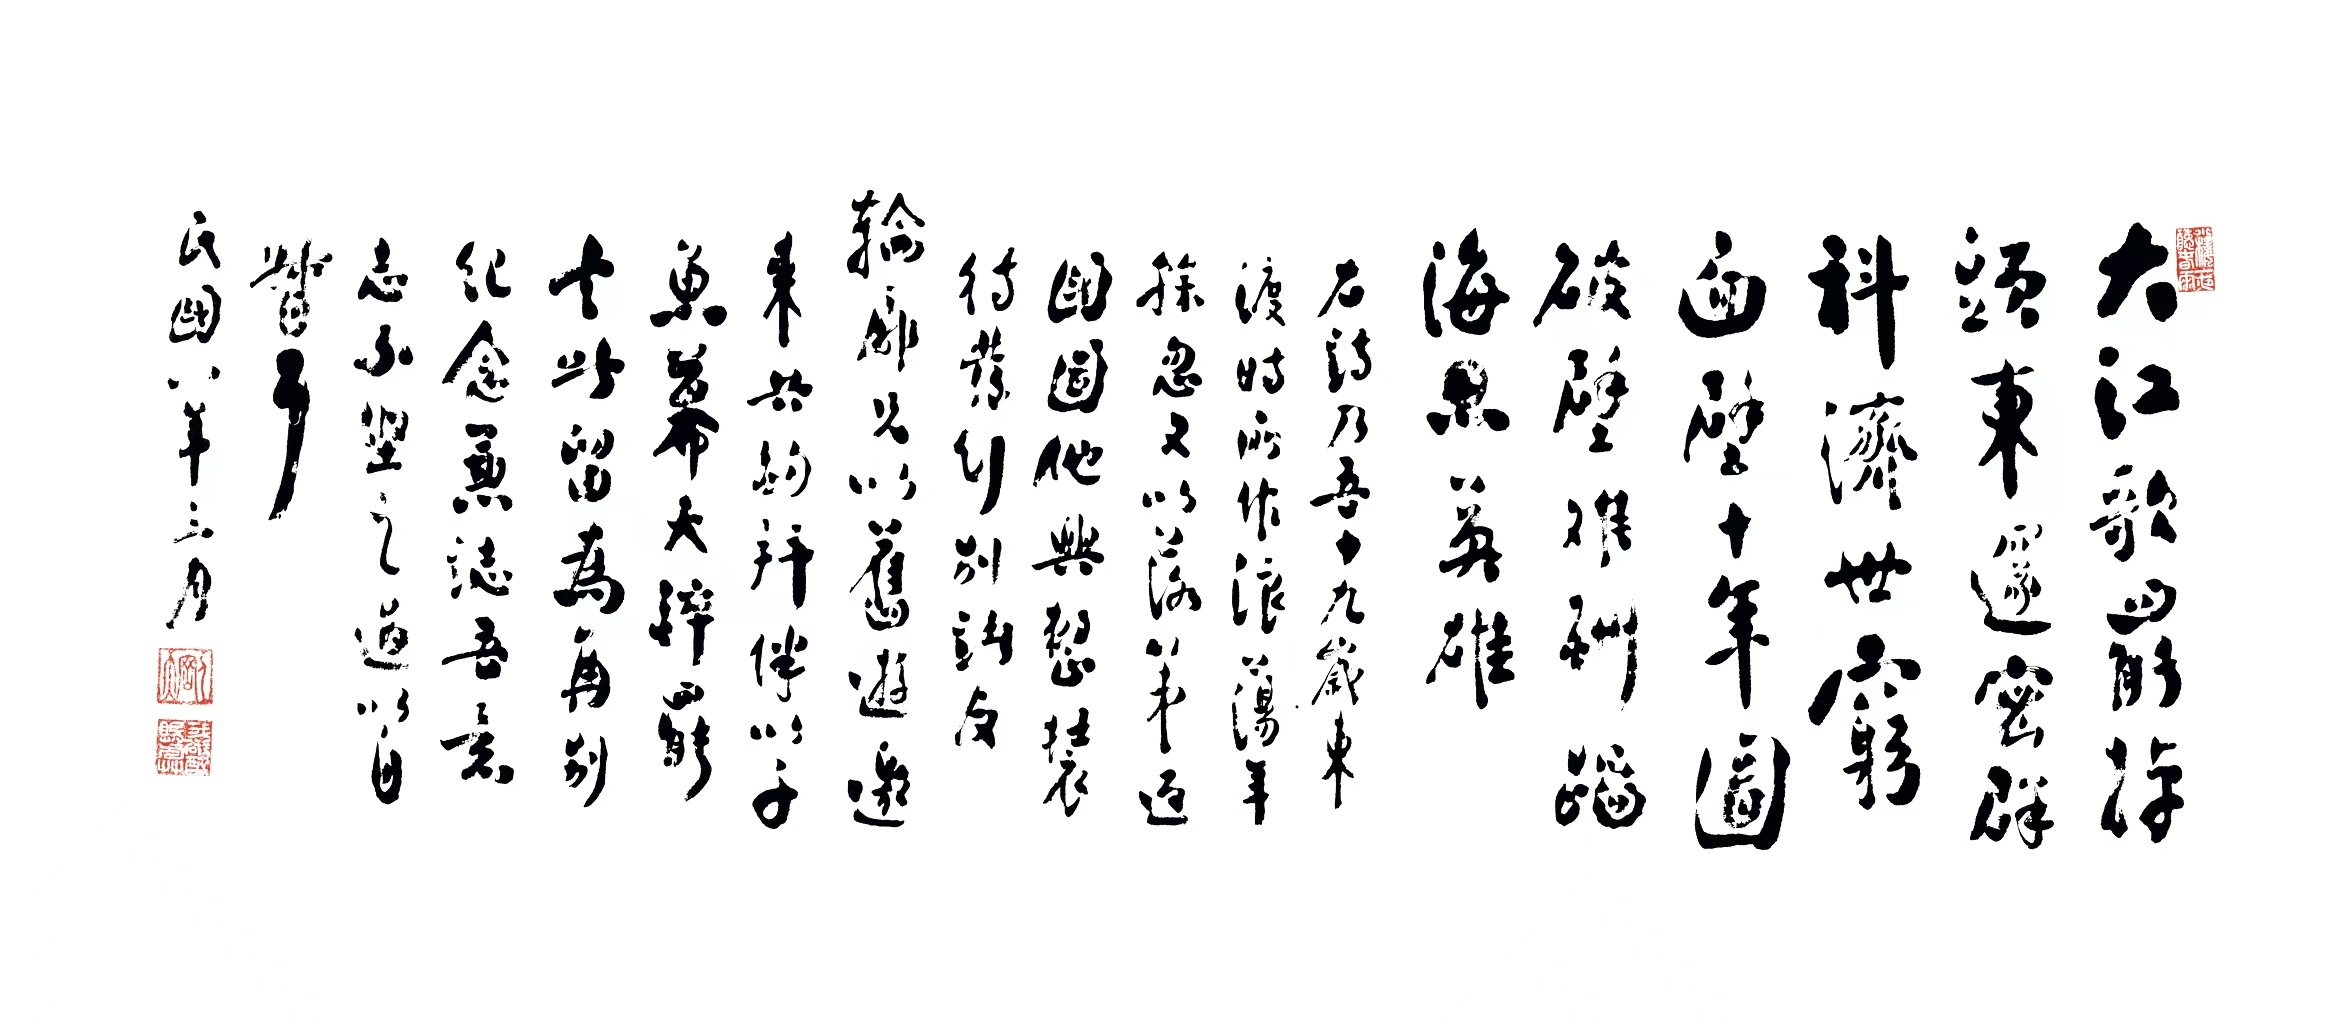 大江歌罷掉
頭東邃密群
科濟世窮
面壁十年圖
破壁難酬蹈
海英雄
右詩乃吾十九歲東
渡時所作浪蕩年
餘忽又以落第返
國圖他興整裝
待發行別諸友
輪扉兄以舊遊邀
來共酌並伴以子
魚慕天醉罷
書此留為再別
紀念兼誌吾意
志不堅之過以自
督耳
民國八年三月